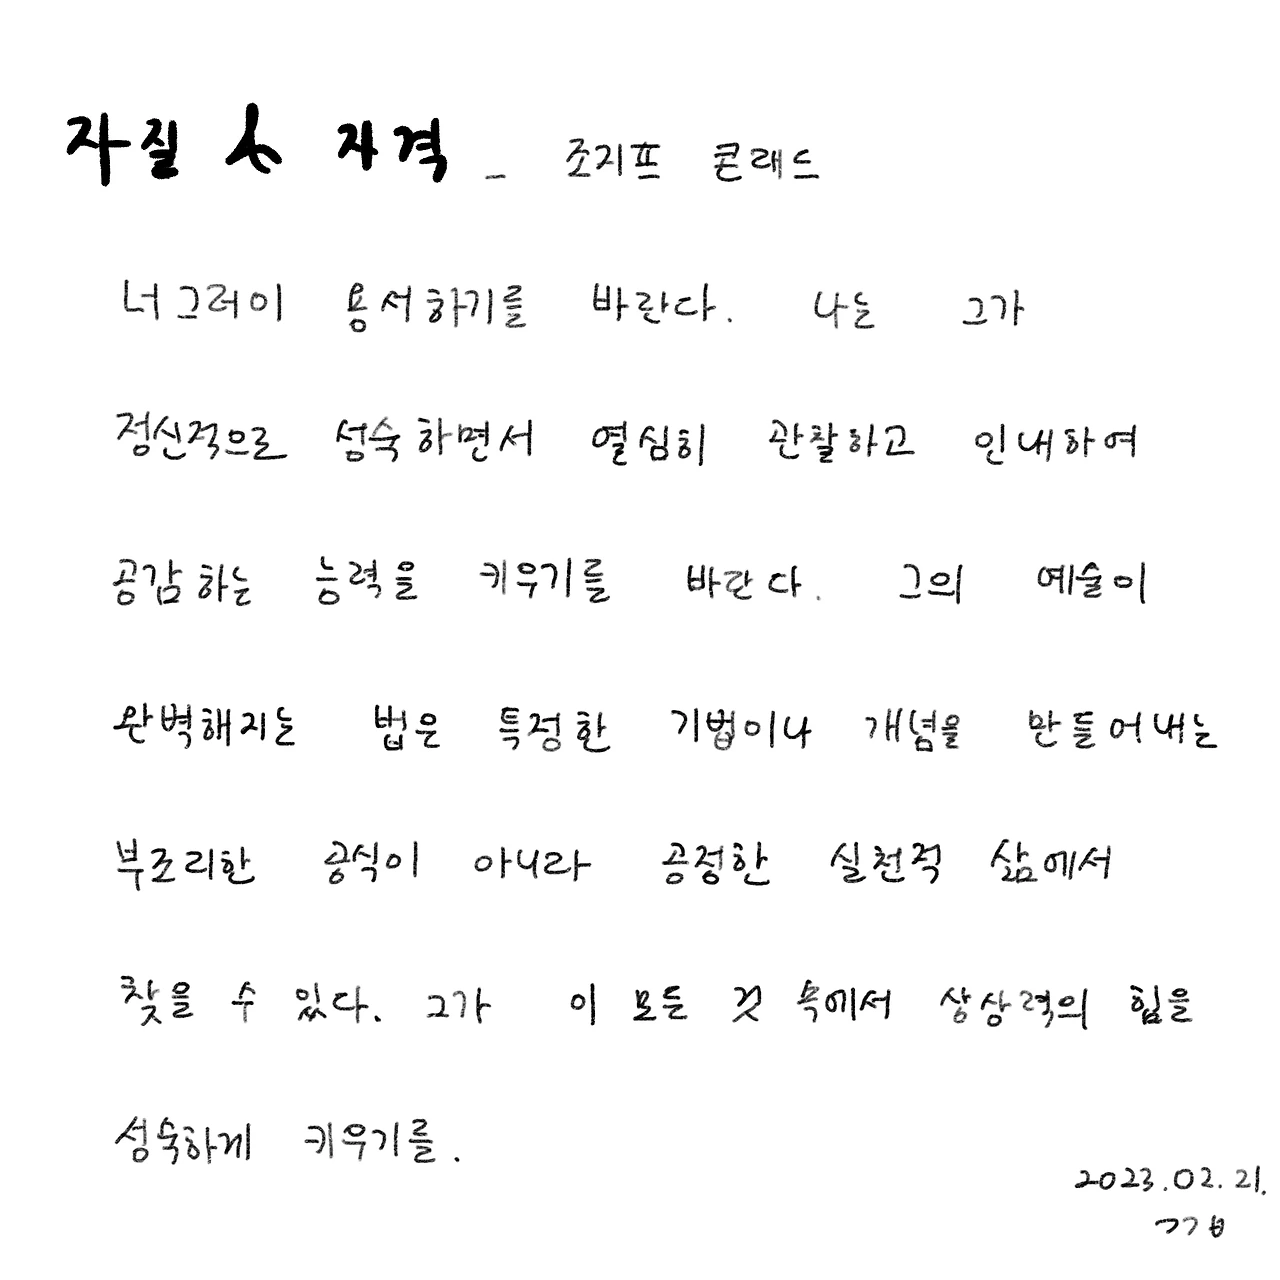 자질 & 자격 _ 조지프 콘래드
너그러이 용서하기를 바란다. 나는 그가
정신적으로 성숙하면서 열심히 관찰하고 인내하여
공감하는 능력을 키우기를 바란다. 그의 예술이
완벽해지는 법은 특정한 기법이나 개념을 만들어내는
부조리한 공식이 아니라 공정한 실천적 삶에서
찾을 수 있다. 그가 이 모든 것 속에서 상상력의 힘을
성숙하게 키우기를.
2023.02.21.
ㄱㄱㅂ